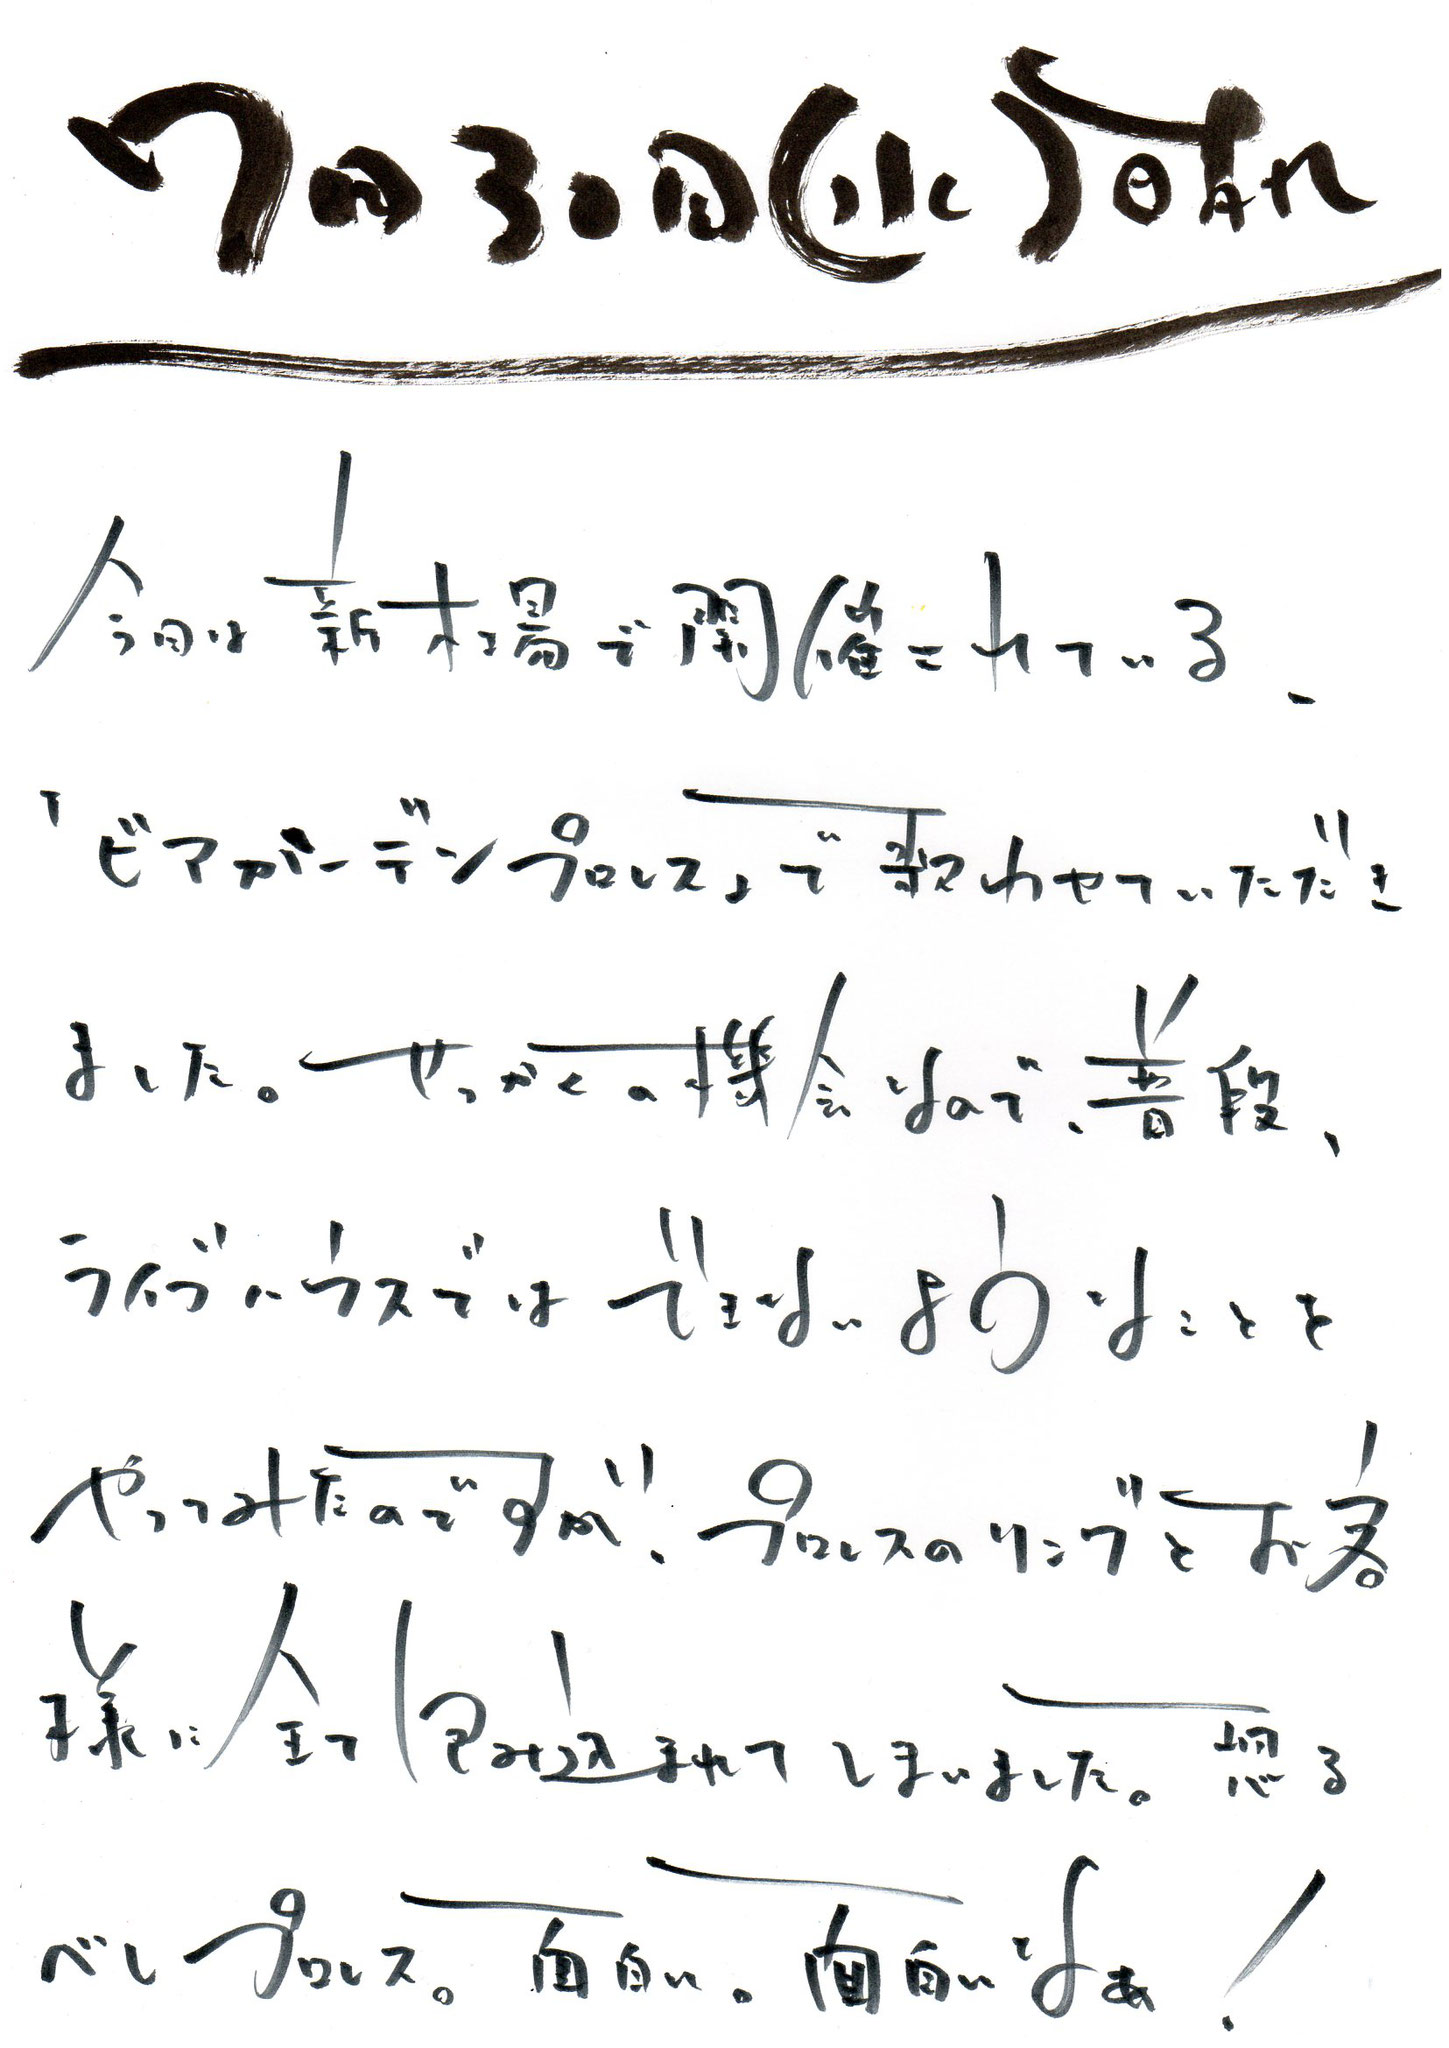 7月30日(水)
今日は新木場で開催されている、
「ビアガーデンプロレス」で歌わせていただき
ました。せっかくの機会なので、普段、
ライブハウスではできないようなことを
やってみたのですが、プロレスのリングとお客
様に全て包み込まれてしまいました。恐る
べしプロレス。面白い。面白いなあ!